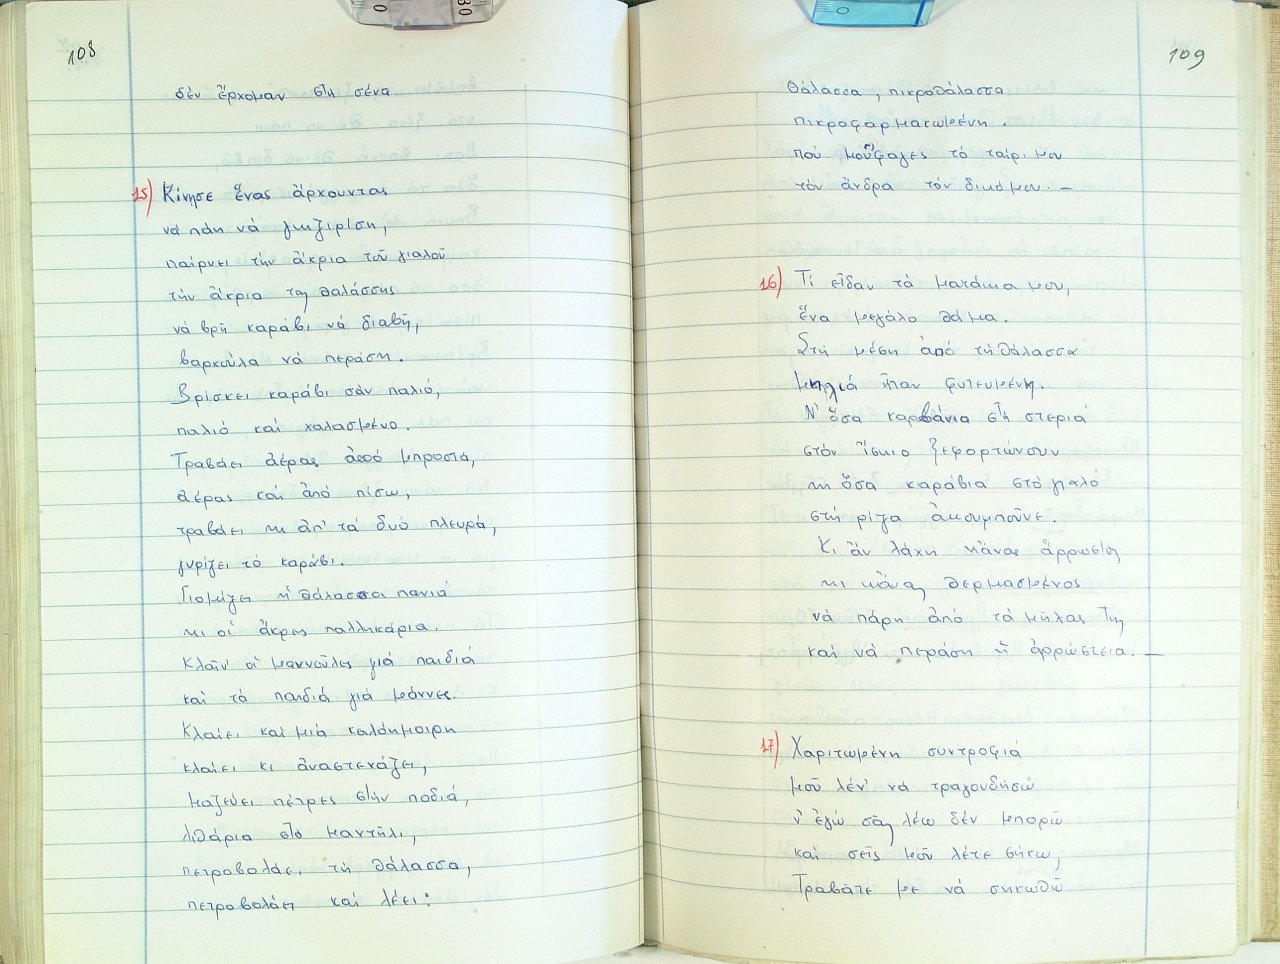 108
δέν ἔρχομαν στή σένα
15) Κίνησε ἕνας ἄρχουντας
νά πάη νά γκιζιρίση,
παίρνει τήν ἄκρια τοῦ γιαλοῦ
τήν ἄκρια τῆς θαλάσσης
νά βρῆ καράβι νά διαβῆ,
βαρκούλα νά περάση.
Βρίσκει καράβι σάν παλιό,
παλιό καί χαλασμένο.
Τραβάει ἀέρας ἀπό μπροστά,
ἀέρας καί ἀπό πίσω,
τραβάει κι ἀπ' τά δυό πλευρά,
γυρίζει τό καράβι.
Γιομίζει ἡ θάλασσα πανιά
κι οἱ ἄκρες παλληκάρια.
Κλαῖν' οἱ μαννοῦλες γιά παιδιά
καί τά παιδιά γιά μάννες.
Κλαίει καί μιά καλόημοιρη
κλαίει κι ἀναστενάζει,
μαζεύει πέτρες στήν ποδιά,
λιθάρια στό μαντήλι,
πετροβολάει τή θάλασσα,
πετροβολάει καί λέει:
109
Θάλασσα, πικροθάλασσα
πικροφαρμακωμένη.
πού μοὔφαγες τό ταίρι μου
τόν ἄνδρα τόν δικό μου. –
16) Τί εἶδαν τά ματάκια μου,
ἕνα μεγάλο θάμα.
Στή μέση ἀπό τή θάλασσα
μηλιά ἦταν φυτευμένη.
Ν' ὅσα καρβάνια στή στεριά
στόν ἴσκιο ξεφορτώνουν
κι ὅσα καράβια στό γιαλό
στή ρίζα ἀκουμποῦνε.
Κι ἄν λάχη κἄνας ἄρρωστος
κι κἄνας θερμασμένος
νά πάρη ἀπό τά μῆλας της
καί νά περάση ἡ ἀρρώστεια. –
17) Χαριτωμένη συντροφιά
μοῦ λέν' νά τραγουδήσω
ν' ἐγώ σᾶς λέω δέν μπορῶ
καί σεῖς μοῦ λέτε σήκω,
Τραβᾶτε με νά σηκωθῶ